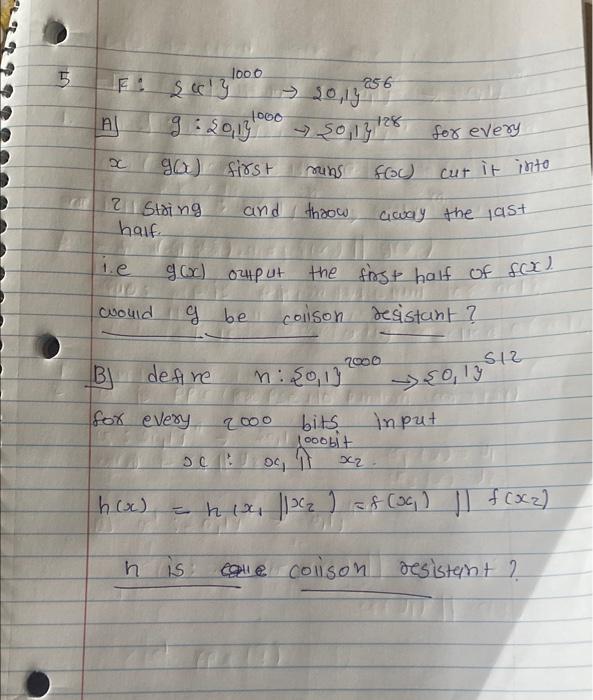 5 F : {0,1}^1000 → {0,1}^256
A] g : {0,1}^1000 → {0,1}^128 for every
x g(x) first runs f(x) cut it into
2 string and throw away the last
half.
i.e g(x) output the first half of f(x)
would g be coiison resistant ?
B] define h : {0,1}^2000 → {0,1}^512
for every 2000 bits input
1000bit
x : x1 || x2.
h(x) = h(x1 ||x2) = f(x1) || f(x2)
h is coiison resistant ?